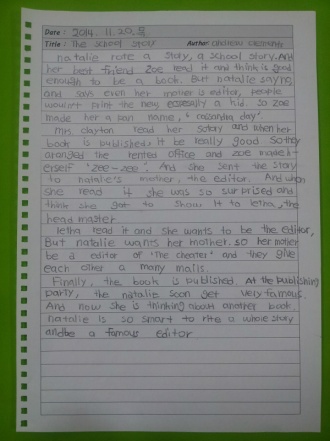 Date : 2014. 11. 20. 목
Title : The school story Author: andrew clements
natalie rote a story, a school story. And
her best friend Zoe read it and think is good
enough to be a book. But natalie say no,
and says even her mother is editor, people
wouldn't print the new, especially a kid. so zoe
made her a pan name, ' cassandra day'
Mrs. clayton read her sotary and when her
book is published, it be really good. So they
aranged the rented office and zoe made h-
erself 'zee-zee'. And she sent the story
to natalie's mother, the editor. And when
she read it she was so surprised and
think she got to show it to letha, the
head master
letha read it and she wants to be the editor,
But natalie wants her mother. so her mother
be a editor of 'The cheater' and they give
each other a many mails.
Finally, the book is published. At the publishing
party, the natalie soon get very famous.
And now she is thinking about another book
natalie is so smart to rite a whole story
and be a famous editor